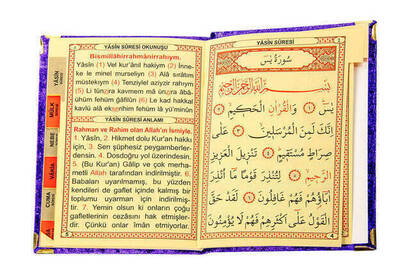 YÂSÎN SÛRESİ OKUNUŞU
Bismillâhirrahmânirrahıym.
Yâsîn (1) Vel kur'ânil hakiym (2) İnne-
ke le minel murseliyn (3) Alâ sırâtım
müstekıym (4) Tenziylel aziyzirrahıym
(5) Li tünzira kavmem mâ ünzira âbâ-
ühüm fehüm ğâfilûn (6) Le kad hakkal
kavlü alâ ekserihim fehüm lâ yü'minûn
YÂSÎN SÛRESİ ANLAMI
Rahman ve Rahim olan Allah'ın İsmiyle.
1. Yâsîn, 2. Hikmet dolu Kur'an hakkı
için, 3. Sen şüphesiz peygamberler-
densin. 4. Dosdoğru yol üzerindesin.
5. (Bu Kur'an) Gâlip ve çok merha-
metli Allah tarafından indirilmiştir. 6.
Babaları uyarılmamış, bu yüzden
kendileri de gaflet içinde kalmış bir
toplumu uyarman için indirilmiş-
tir. 7. Yemin olsun ki onların çoğu
gafletlerinin cezasını hak etmişler-
dir. Çünkü onlar iman etmiyorlar.
YÂSÎN
MÜLK
NEBE
VÂKIA
CUMA
YÂSÎN SÛRESİ
سُورَةُ يٰسٓ
بِسْمِ اللّٰهِ الرَّحْمٰنِ الرَّحِيمِ
يٰسٓ ﴿١﴾ وَالْقُرْاٰنِ الْحَكِيمِ ﴿٢﴾
اِنَّكَ لَمِنَ الْمُرْسَلِينَ ﴿٣﴾ عَلٰى
صِرَاطٍ مُسْتَقِيمٍ ﴿٤﴾ تَنْزِيلَ الْعَزِيزِ
الرَّحِيمِ ﴿٥﴾ لِتُنْذِرَ قَوْمًا مَٓا اُنْذِرَ
اٰبَٓاؤُهُمْ فَهُمْ غَافِلُونَ ﴿٦﴾ لَقَدْ حَقَّ
الْقَوْلُ عَلٰٓى اَكْثَرِهِمْ فَهُمْ لَا يُؤْمِنُونَ
4